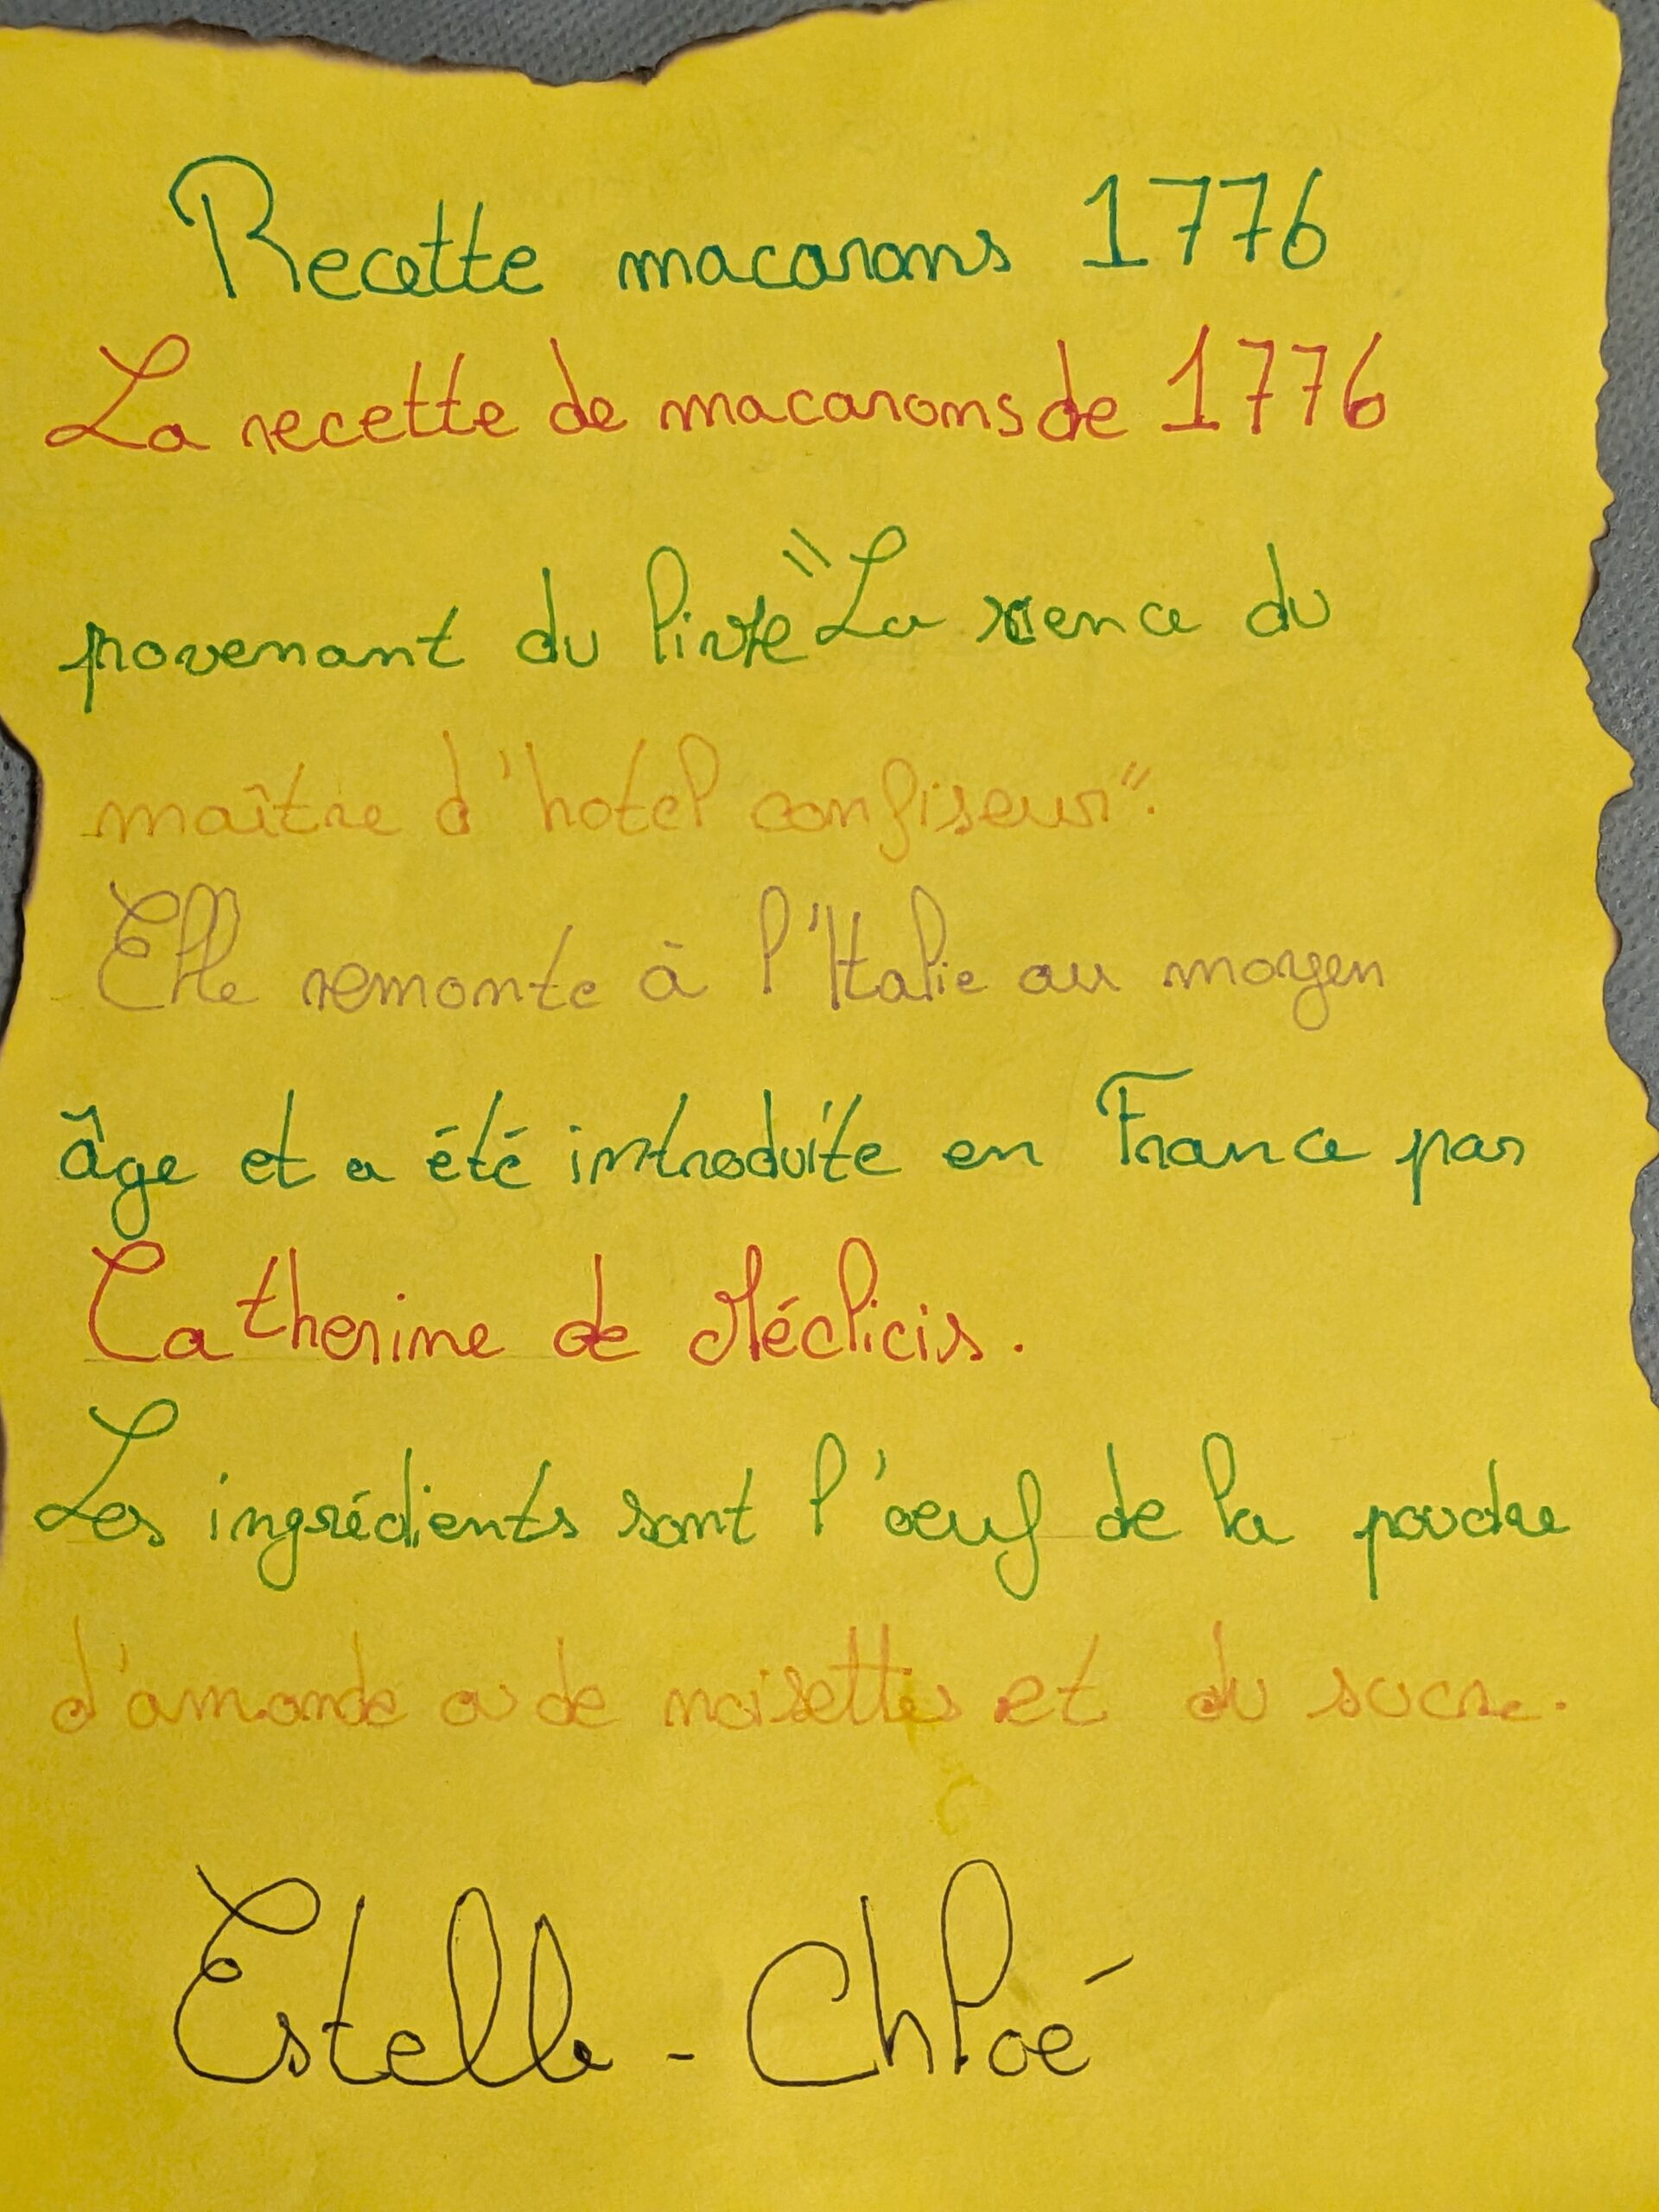 Recette macarons 1776
La recette de macarons de 1776
provenant du livre "La sience du
maître d'hotel confiseur".
Elle remonte à l'Italie au moyen
âge et a été introduite en France par
Catherine de Médicis.
Les ingrédients sont l'oeuf de la poudre
d'amande ou de noisettes et du sucre.
Estelle - Chloé